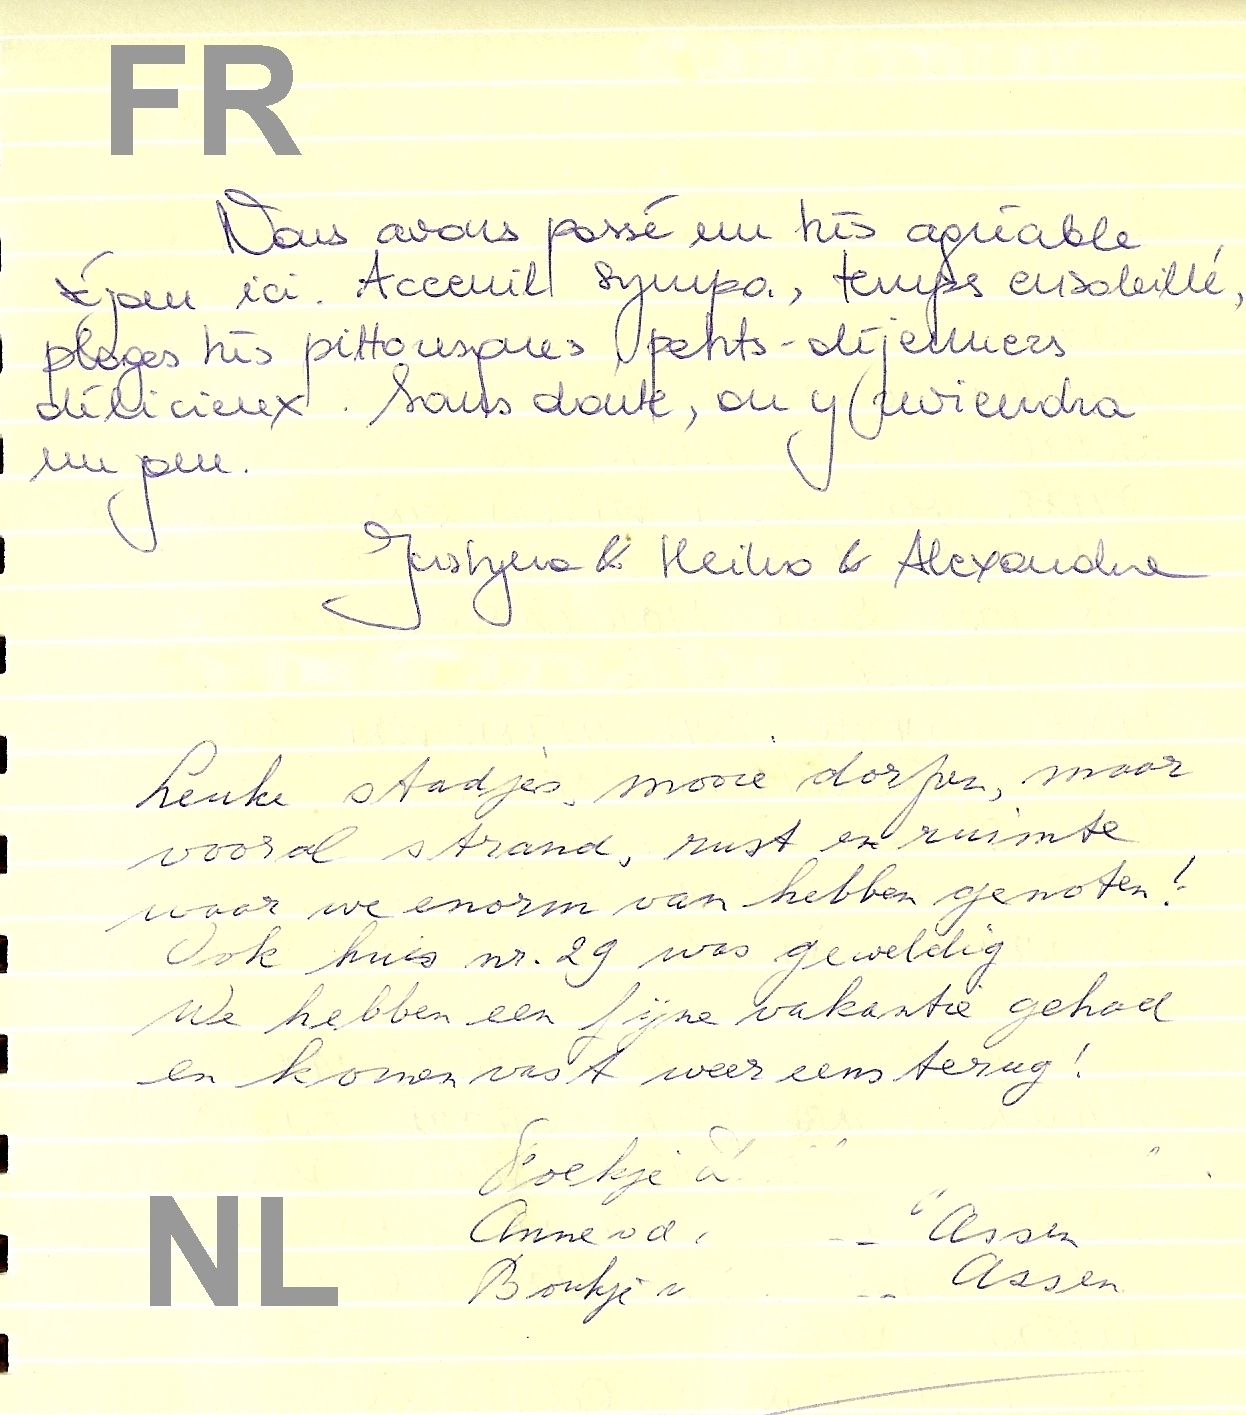 FR
Nous avons passé un très agréable
séjour ici. Acceuil sympa, temps ensoleillé,
plages très pittoresques, petits-déjeuners
délicieux. Sans doute, on y reviendra
un jour.
Justyna & Heiko & Alexandre
Leuke stadjes, mooie dorpen, maar
vooral strand, rust en ruimte
waar we enorm van hebben genoten!
Ook huis nr. 29 was geweldig
We hebben een fijne vakantie gehad
en komen vast weer eens terug!
Anne vd Assen
NL
Boukje v Assen